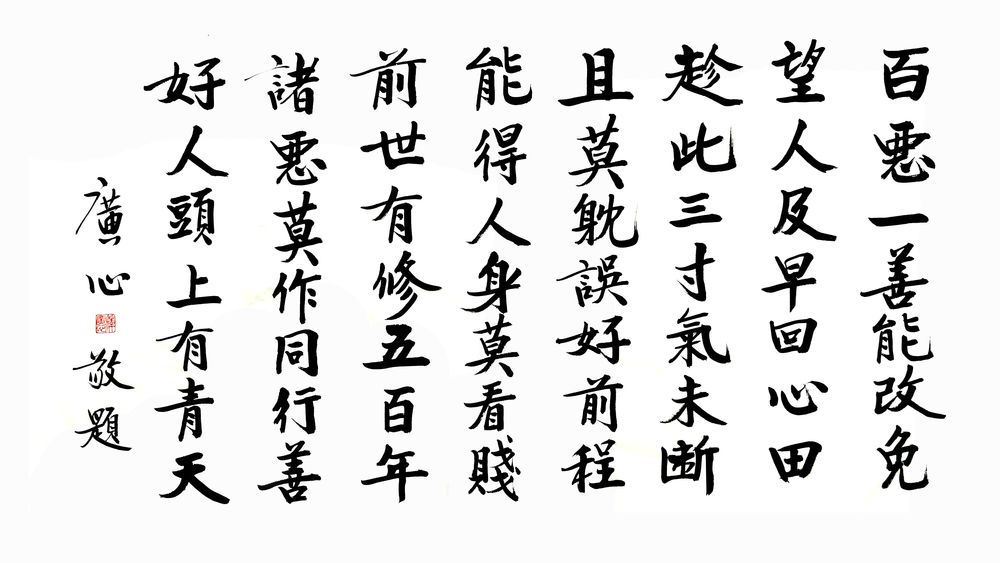 百惡一善能改免
望人及早回心田
趁此三寸氣未断
且莫躭誤好前程
能得人身莫看賤
前世有修五百年
諸惡莫作同行善
好人頭上有青天
廣心敬題